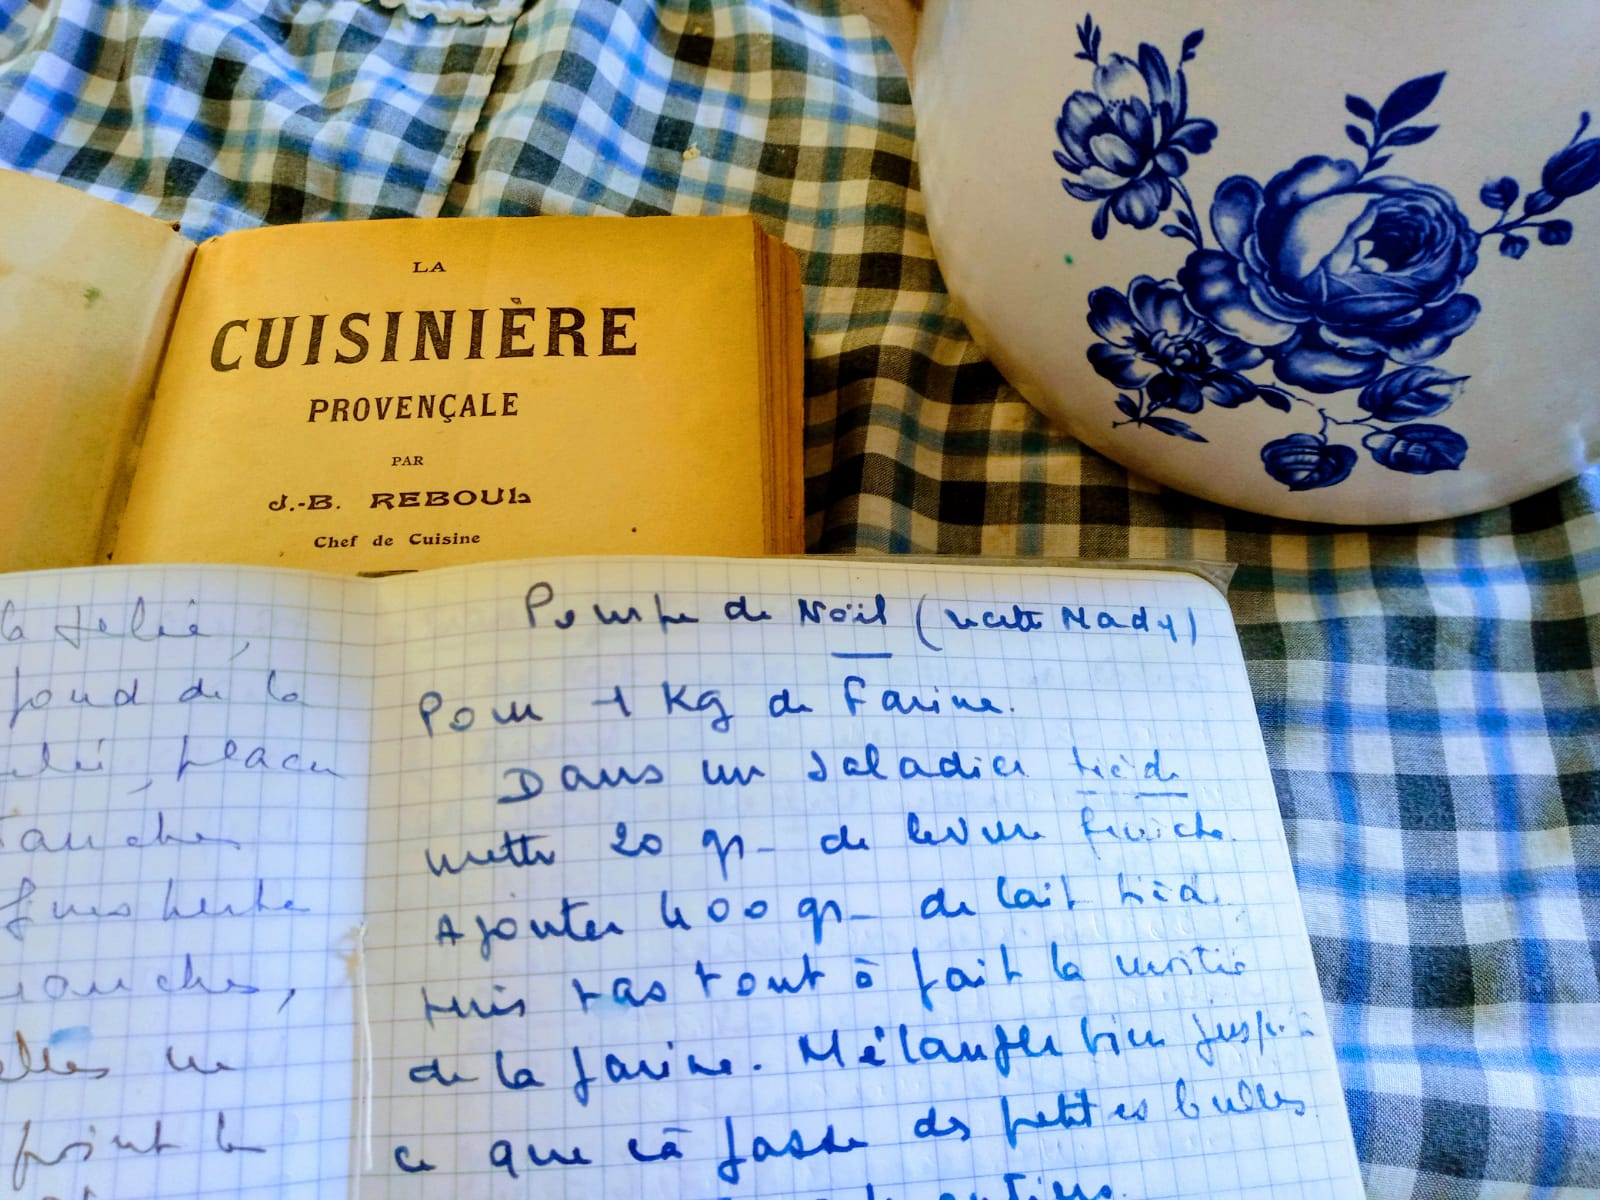 LA
CUISINIÈRE
PROVENÇALE
PAR
J.-B. REBOUL
Chef de Cuisine
la gelée,
fond de la
gelée, placer
tanches
fines herbes
tranches,
elles ne
point le
Pompe de Noël (recette Mady)
Pour 1 Kg de Farine.
Dans un saladier tiède
mettre 20 gr- de levure fraiche.
Ajouter 400 gr- de lait tiède
puis pas tout à fait la moitié
de la farine. Mélanger bien jusqu'à
ce que cà fasse des petites bulles